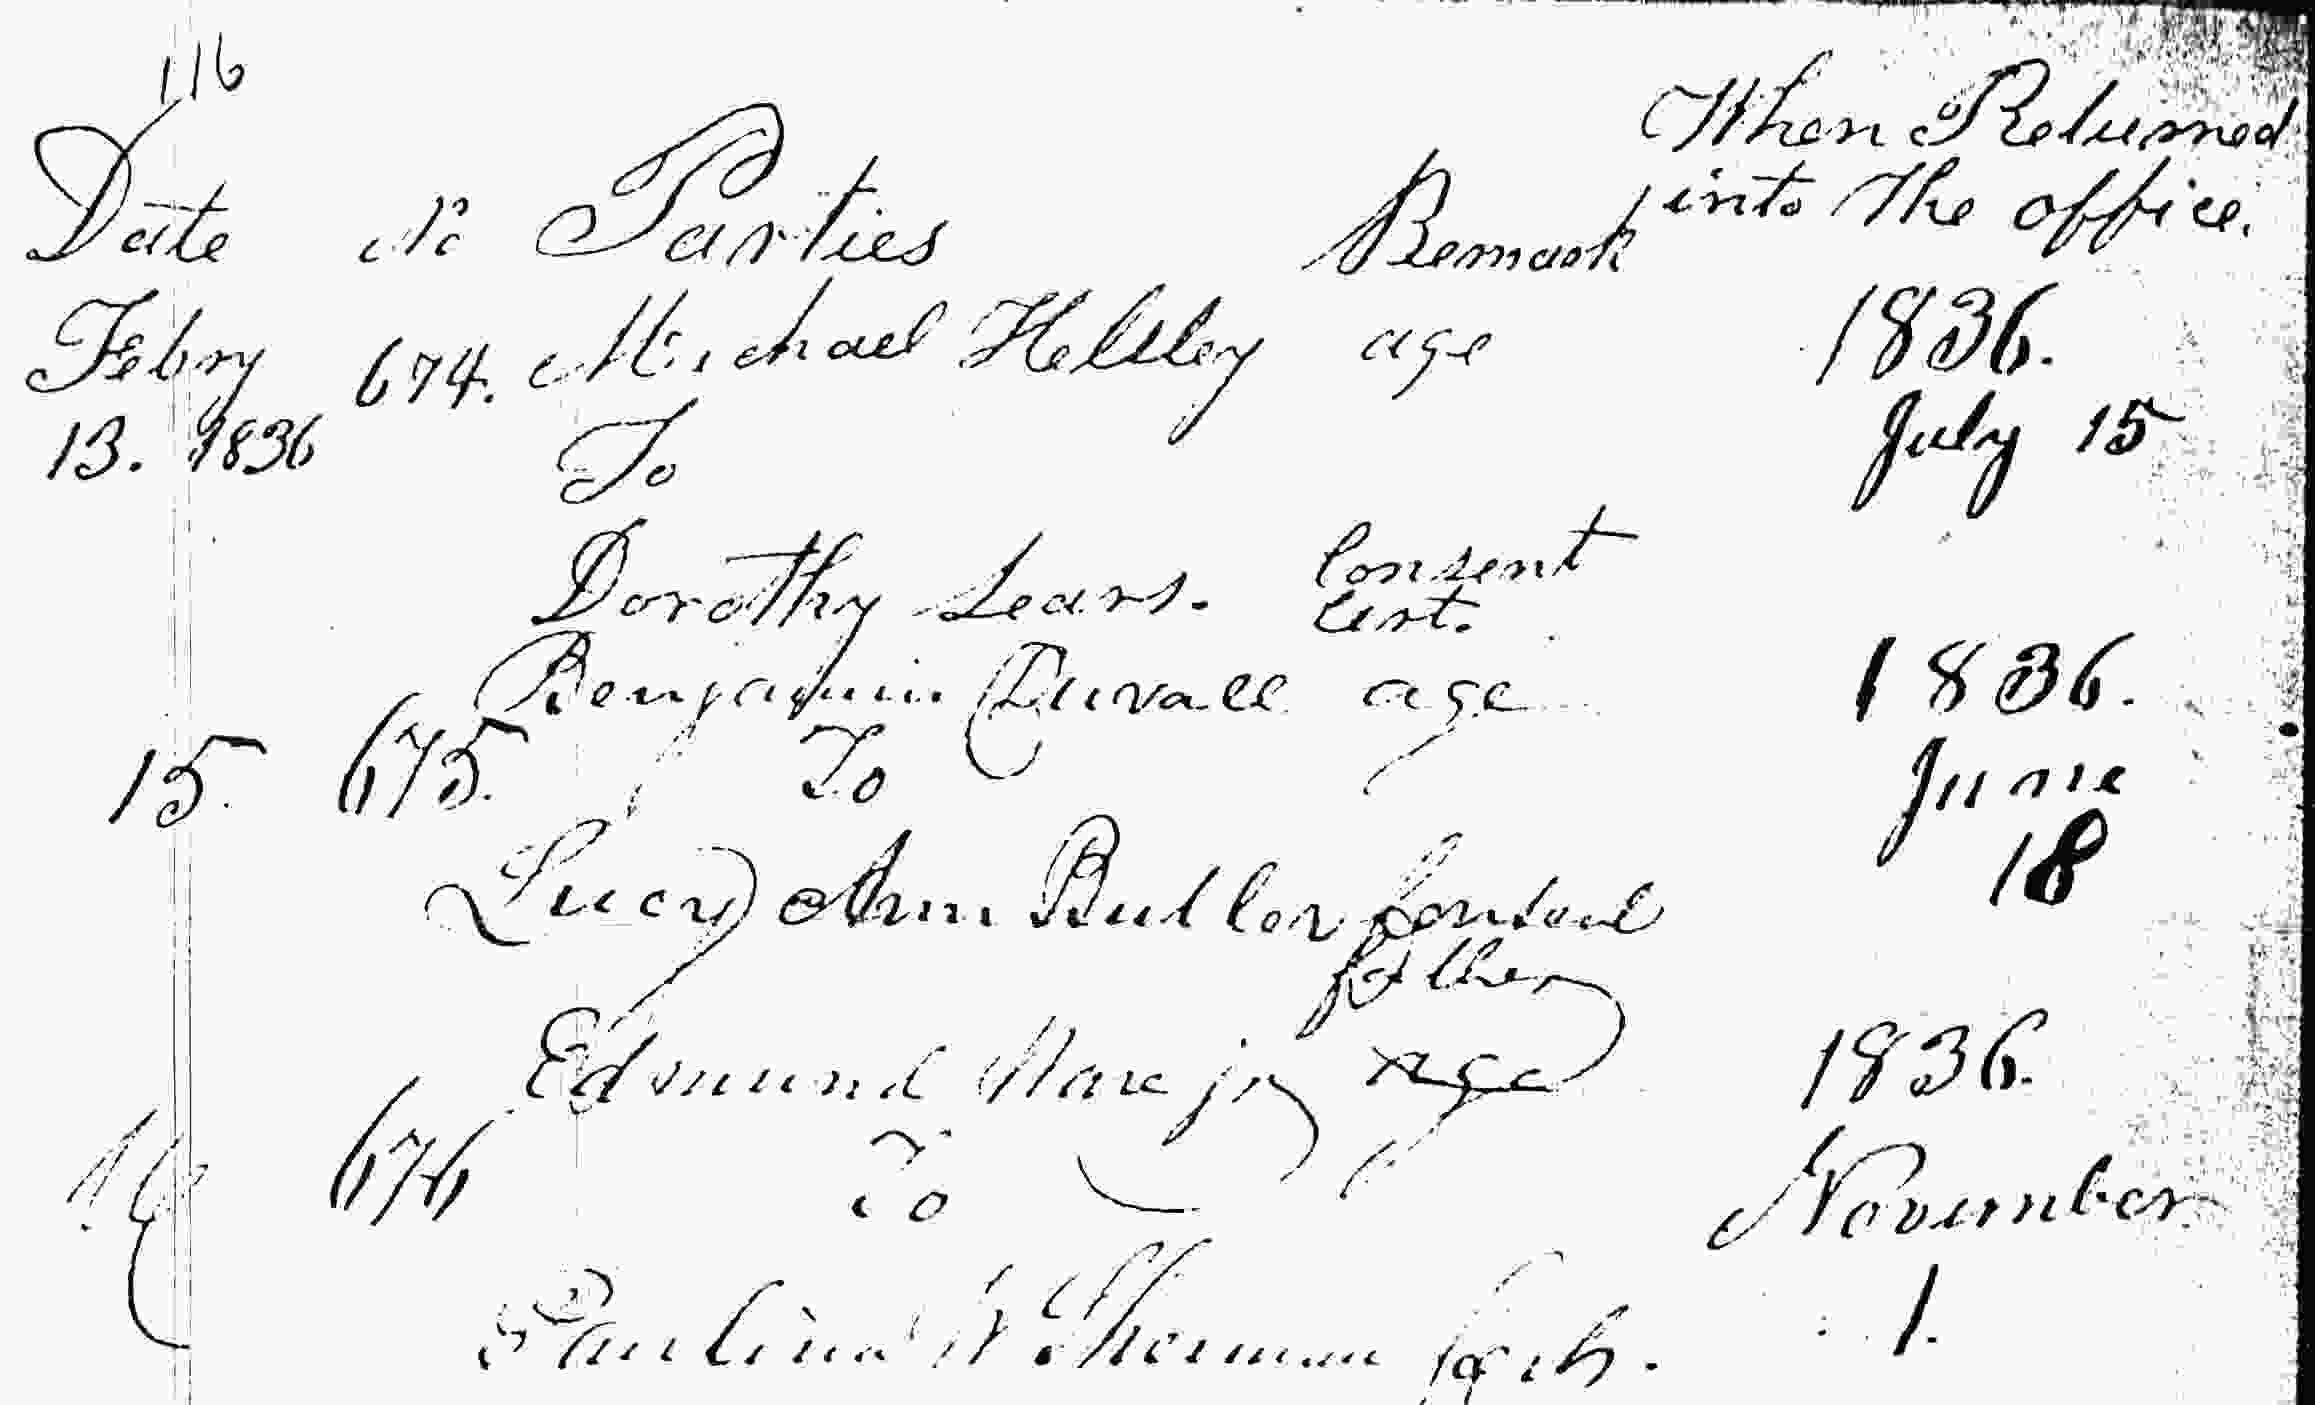 116
Date No Parties Remark When Returned into the office.
Febry 674. Michael Helsley age 1836.
13. 1836 To July 15
Dorothy Sears. Consent
Cert.
Benjamin Duvall age 1836.
15. 675. To June
Lucy Ann Butler Consent 18
father
Edmund Ware jr age 1836.
16 676 To November
Paulina W Sherman 1.